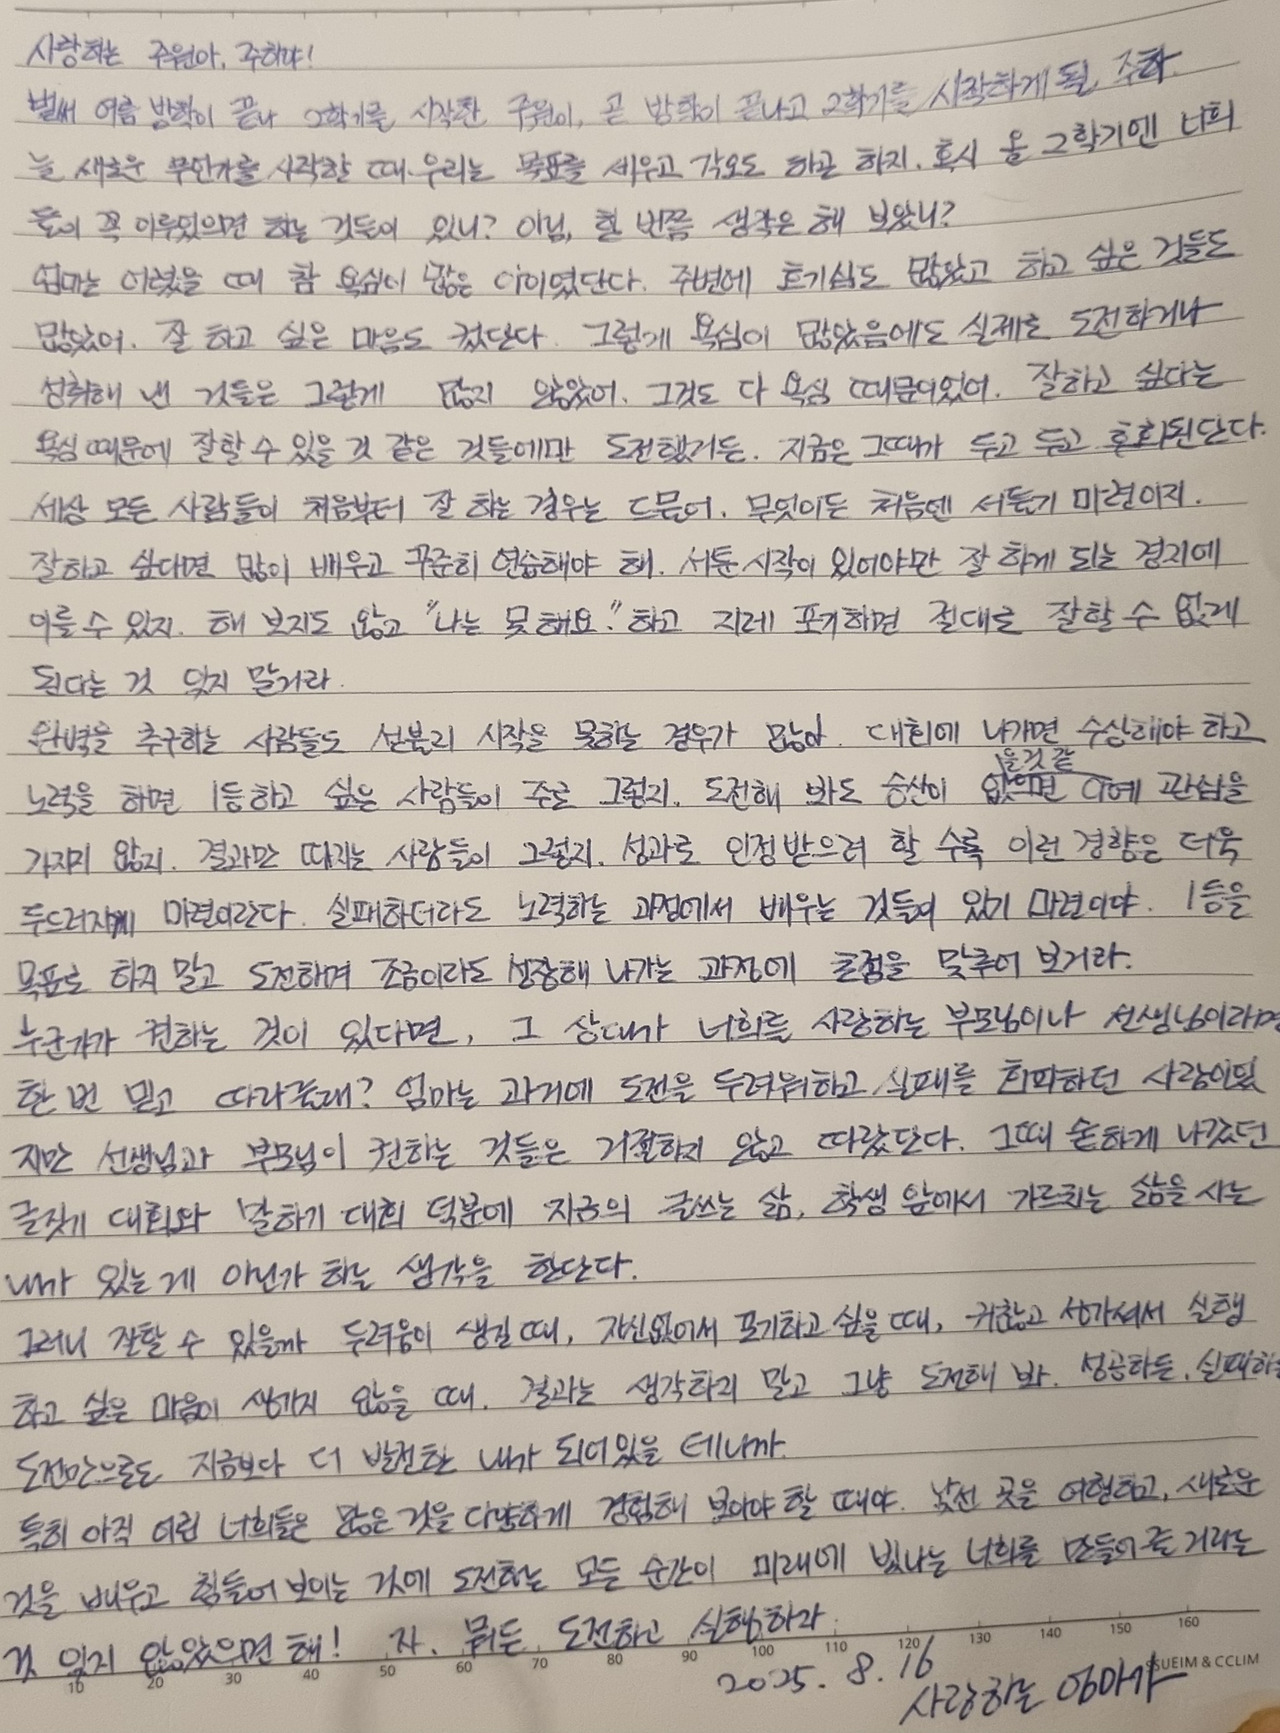 사랑하는 주원아, 주하야!
벌써 여름 방학이 끝나 2학기를 시작한 주원이, 곧 방학이 끝나고 2학기를 시작하게 될 주하.
늘 새로운 무언가를 시작할 때 우리는 목표를 세우고 각오도 하곤 하지. 혹시 올 2학기엔 너희
들이 꼭 이루었으면 하는 것들이 있니? 아님, 한 번쯤 생각은 해 보았니?
엄마는 어렸을 때 참 욕심이 많은 아이였단다. 주변에 호기심도 많았고 하고 싶은 것들도
많았어. 잘 하고 싶은 마음도 컸단다. 그렇게 욕심이 많았음에도 실제로 도전하거나
성취해 낸 것들은 그렇게 많지 않았어. 그것도 다 욕심 때문이었어. 잘하고 싶다는
욕심 때문에 잘할 수 있을 것 같은 것들에만 도전했거든. 지금은 그때가 두고 두고 후회된단다.
세상 모든 사람들이 처음부터 잘 하는 경우는 드물어. 무엇이든 처음엔 서툴기 마련이지.
잘하고 싶다면 많이 배우고 꾸준히 연습해야 해. 서툰 시작이 있어야만 잘 하게 되는 경지에
이를 수 있지. 해 보지도 않고 "나는 못해요." 하고 지레 포기하면 절대로 잘할 수 없게
된다는 것 잊지 말거라.
완벽을 추구하는 사람들도 섣불리 시작을 못하는 경우가 많아. 대회에 나가면 수상해야 하고
노력을 하면 1등하고 싶은 사람들이 주로 그렇지. 도전해 봐도 승산이 없을것 같으면 아예 관심을
가지지 않지. 결과만 따지는 사람들이 그렇지. 성과로 인정받으려 할 수록 이런 경향은 더욱
두드러지게 마련이란다. 실패하더라도 노력하는 과정에서 배우는 것들이 있기 마련이야. 1등을
목표로 하지 말고 도전하며 조금이라도 성장해 나가는 과정에 초점을 맞추어 보거라.
누군가가 권하는 것이 있다면, 그 상대가 너희를 사랑하는 부모님이나 선생님이라면
한 번 믿고 따라줄래? 엄마는 과거에 도전을 두려워하고 실패를 회피하던 사람이었
지만 선생님과 부모님이 권하는 것들은 거절하지 않고 따랐단다. 그때 숱하게 나갔던
글짓기 대회와 말하기 대회 덕분에 지금의 글쓰는 삶, 학생 앞에서 가르치는 삶을 사는
내가 있는 게 아닌가 하는 생각을 한단다.
그러니 잘할 수 있을까 두려움이 생길 때, 자신없어서 포기하고 싶을 때, 귀찮고 성가셔서 실행
하고 싶은 마음이 생기지 않을 때. 결과는 생각하지 말고 그냥 도전해 봐. 성공하든, 실패하든
도전만으로도 지금보다 더 발전한 내가 되어있을 테니까.
특히 아직 어린 너희들은 많은 것을 다양하게 경험해 보아야 할 때야. 낯선 곳을 여행하고, 새로운
것을 배우고 힘들어 보이는 것에 도전하는 모든 순간이 미래에 빛나는 너희를 만들어 줄 거라는
것 잊지 않았으면 해! 자. 뭐든 도전하고 실행하라.
10 20 30 40 50 60 70 80 90 100 110 120 130 140 150 160
2025. 8. 16 SSUEIM & CCLIM
사랑하는 엄마가